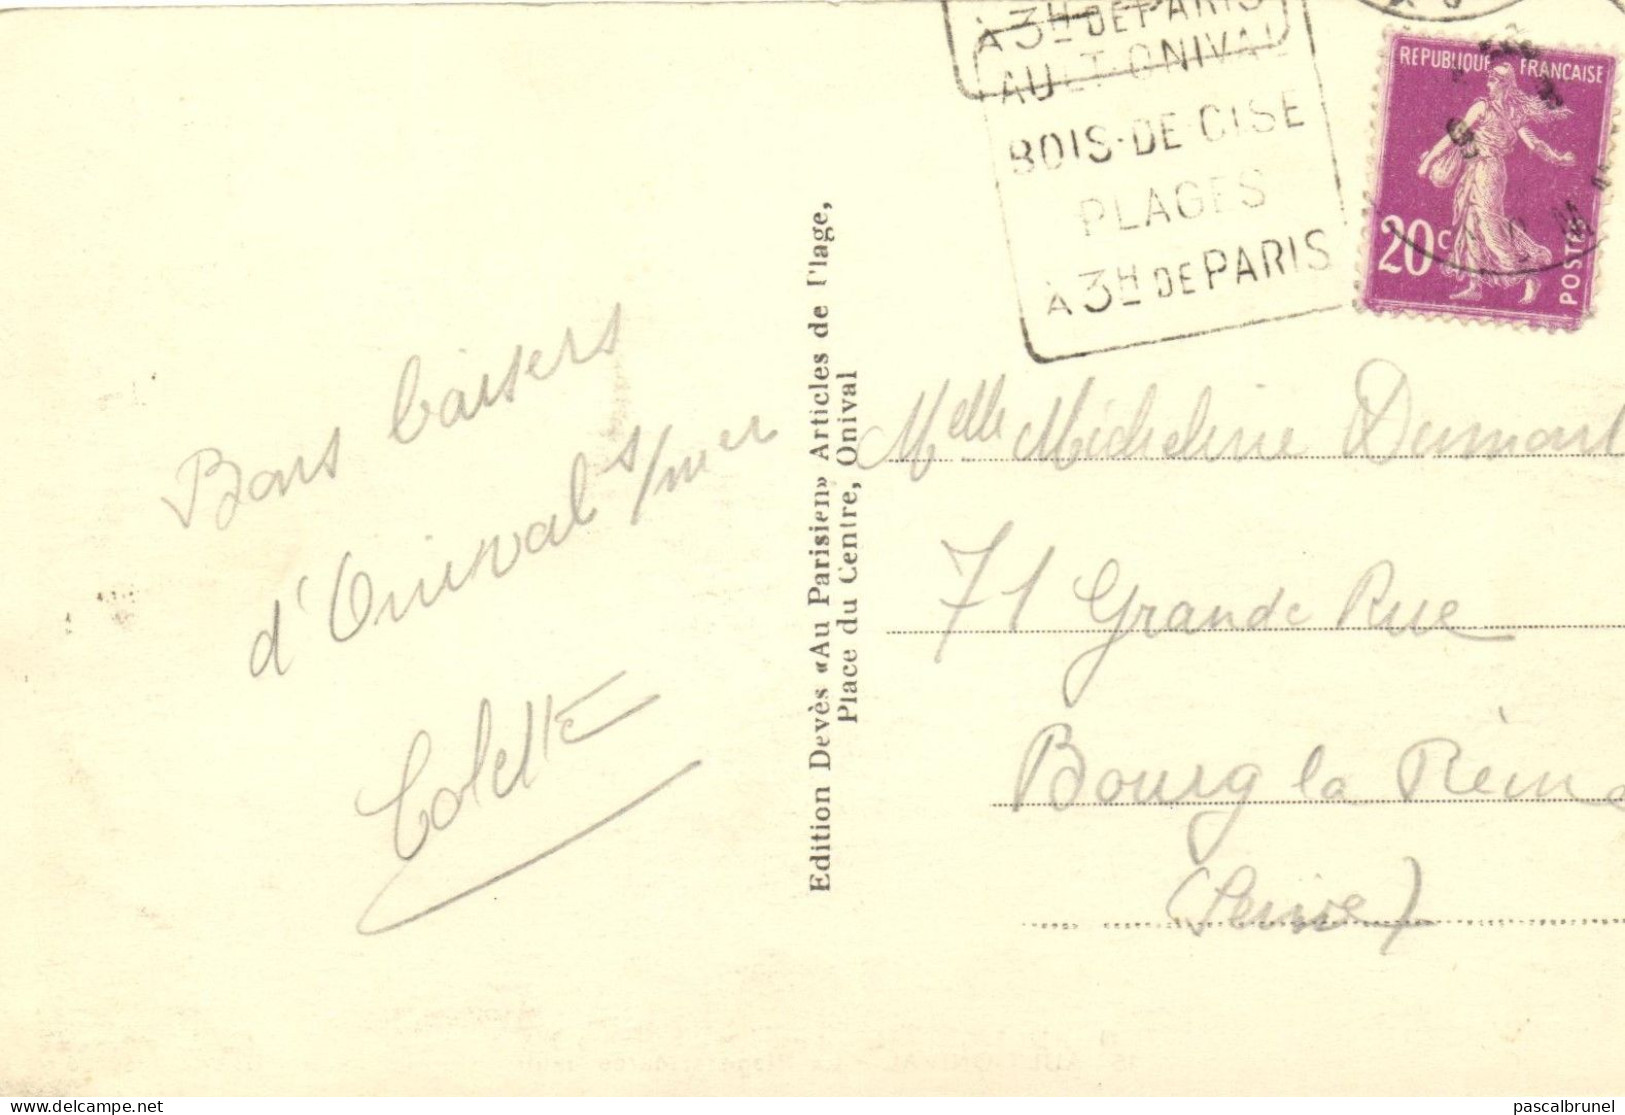 À 3H DE PARIS
AULT-ONIVAL
BOIS-DE-CISE
PLAGES
À 3H DE PARIS
REPUBLIQUE FRANCAISE
20c
POSTES
Bons baisers
d'Onival s/mer
Colette
Edition Devès «Au Parisien» Articles de Plage,
Place du Centre, Onival
Melle Micheline Dumont
71 Grande Rue
Bourg la Reine
(Seine)
delcampe.net
pascalbrunel